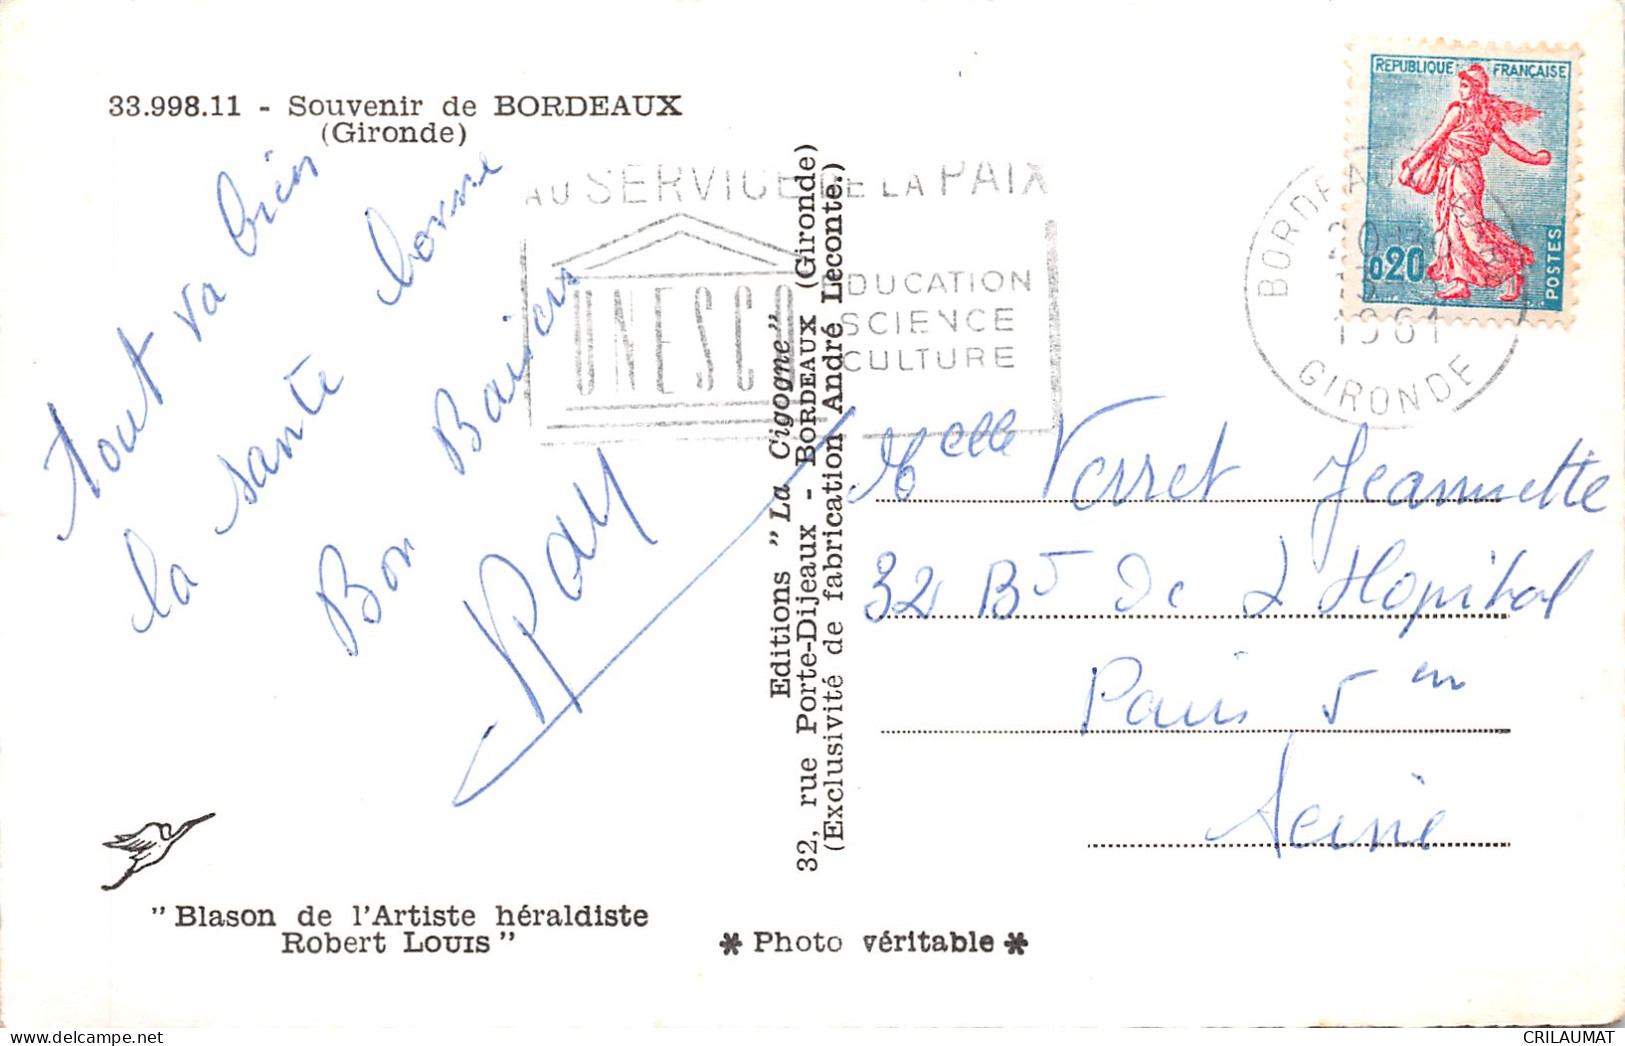 33.998.11 - Souvenir de BORDEAUX
(Gironde)
Tout va bien
la santé bonne
Bon Baisers
AU SERVICE DE LA PAIX
UNESCO
EDUCATION
SCIENCE
CULTURE
REPUBLIQUE FRANÇAISE
0,20
POSTES
BORDEAUX
1961
GIRONDE
Editions "La Cigogne"
32, rue Porte-Dijeaux - BORDEAUX (Gironde)
(Exclusivité de fabrication André Leconte.)
Melle Verret Jeannette
32 Bd De L Hopital
Paris 5 em
Seine
"Blason de l'Artiste héraldiste
Robert LOUIS"
* Photo véritable *
CRILAUMAT